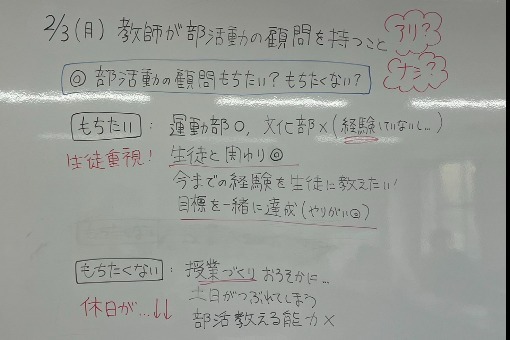 2/3(月) 教師が部活動の顧問を持つこと アリ? ナシ?
◎ 部活動の顧問もちたい?もちたくない?
もちたい : 運動部○, 文化部×(経験していないし…)
生徒重視! 生徒と関わり◎
今までの経験を生徒に教えたい!
目標を一緒に達成(やりがい◎)
もちたくない : 授業づくりおろそかに…
休日が…↓↓ 土日がつぶれてしまう
部活教える能力×